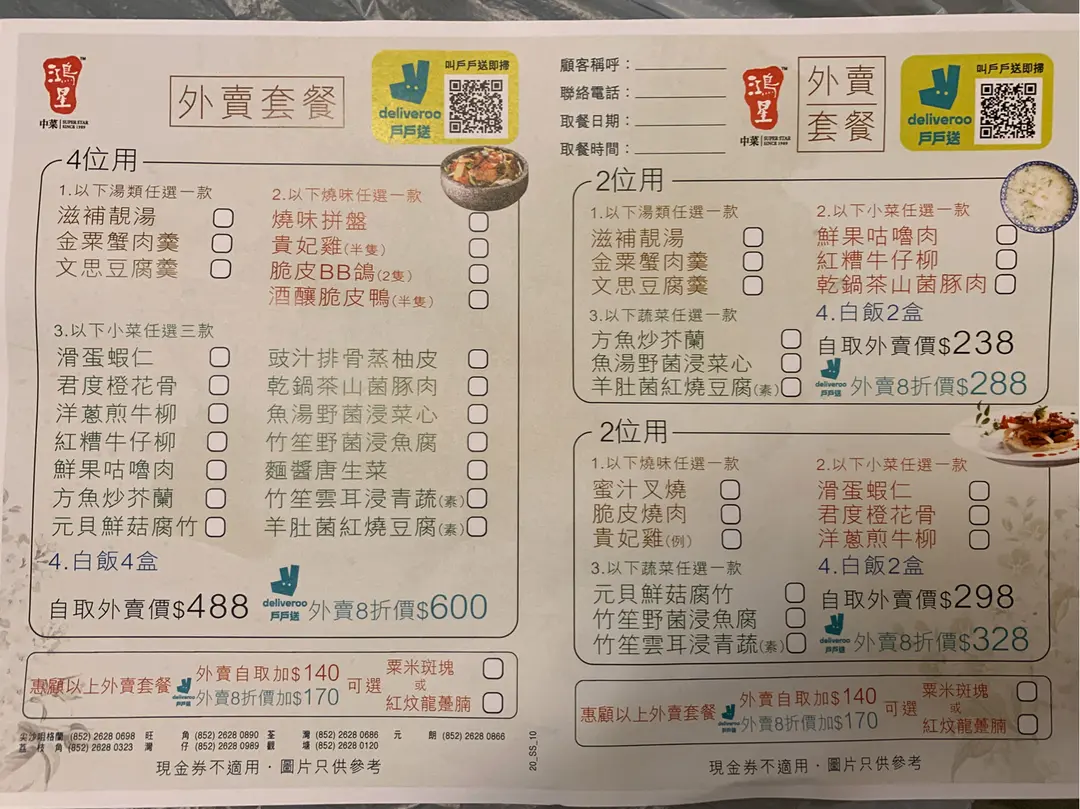 鴻星
中菜 SUPER STAR SINCE 1989
外賣套餐
叫戶戶送即掃
deliveroo
戶戶送
4位用
1.以下湯類任選一款
滋補靚湯
金粟蟹肉羹
文思豆腐羹
2.以下燒味任選一款
燒味拼盤
貴妃雞(半隻)
脆皮BB鴿(2隻)
酒釀脆皮鴨(半隻)
3.以下小菜任選三款
滑蛋蝦仁
君度橙花骨
洋蔥煎牛柳
紅糟牛仔柳
鮮果咕嚕肉
方魚炒芥蘭
元貝鮮菇腐竹
豉汁排骨蒸柚皮
乾鍋茶山菌豚肉
魚湯野菌浸菜心
竹笙野菌浸魚腐
麵醬唐生菜
竹笙雲耳浸青蔬(素)
羊肚菌紅燒豆腐(素)
4.白飯4盒
自取外賣價$488
deliveroo 戶戶送 外賣8折價$600
惠顧以上外賣套餐
外賣自取加$140
deliveroo 戶戶送 外賣8折價加$170
可選
粟米斑塊
或
紅炆龍躉腩
尖沙咀格蘭 (852) 2628 0698 旺角 (852) 2628 0890 荃灣 (852) 2628 0686 元朗 (852) 2628 0866
荔枝角 (852) 2628 0323 灣仔 (852) 2628 0989 觀塘 (852) 2628 0120
現金券不適用．圖片只供參考
20_SS_10
顧客稱呼：
聯絡電話：
取餐日期：
取餐時間：
鴻星
中菜 SUPER STAR SINCE 1989
外賣
套餐
叫戶戶送即掃
deliveroo
戶戶送
2位用
1.以下湯類任選一款
滋補靚湯
金粟蟹肉羹
文思豆腐羹
2.以下小菜任選一款
鮮果咕嚕肉
紅糟牛仔柳
乾鍋茶山菌豚肉
3.以下蔬菜任選一款
方魚炒芥蘭
魚湯野菌浸菜心
羊肚菌紅燒豆腐(素)
4.白飯2盒
自取外賣價$238
deliveroo 戶戶送 外賣8折價$288
2位用
1.以下燒味任選一款
蜜汁叉燒
脆皮燒肉
貴妃雞(例)
2.以下小菜任選一款
滑蛋蝦仁
君度橙花骨
洋蔥煎牛柳
3.以下蔬菜任選一款
元貝鮮菇腐竹
竹笙野菌浸魚腐
竹笙雲耳浸青蔬(素)
4.白飯2盒
自取外賣價$298
deliveroo 戶戶送 外賣8折價$328
惠顧以上外賣套餐
外賣自取加$140
deliveroo 戶戶送 外賣8折價加$170
可選
粟米斑塊
或
紅炆龍躉腩
現金券不適用．圖片只供參考